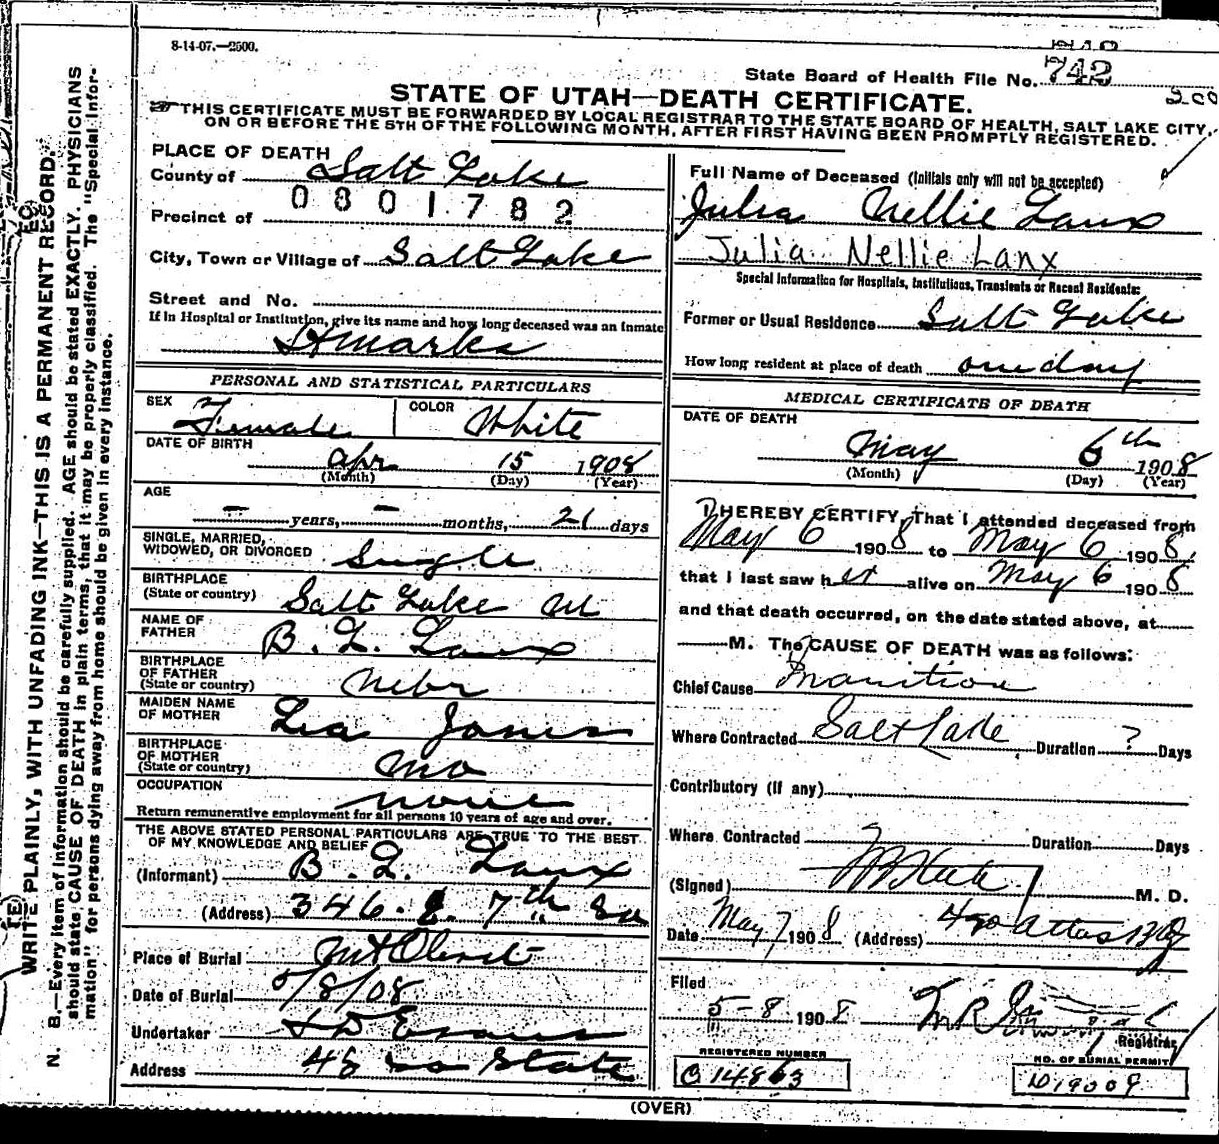 8-14-07.—2500.
State Board of Health File No. 742
STATE OF UTAH—DEATH CERTIFICATE.
THIS CERTIFICATE MUST BE FORWARDED BY LOCAL REGISTRAR TO THE STATE BOARD OF HEALTH, SALT LAKE CITY,
ON OR BEFORE THE 5TH OF THE FOLLOWING MONTH, AFTER FIRST HAVING BEEN PROMPTLY REGISTERED.
WRITE PLAINLY, WITH UNFADING INK—THIS IS A PERMANENT RECORD.
N. B.—Every item of information should be carefully supplied. AGE should be stated EXACTLY. PHYSICIANS
should state CAUSE OF DEATH in plain terms, that it may be properly classified. The "Special Infor-
mation" for persons dying away from home should be given in every instance.
PLACE OF DEATH
County of Salt Lake
0801782
Precinct of
City, Town or Village of Salt Lake
Street and No.
If in Hospital or Institution, give its name and how long deceased was an inmate
St Marks
PERSONAL AND STATISTICAL PARTICULARS
SEX Female COLOR White
DATE OF BIRTH
Apr 15 1908
(Month) (Day) (Year)
AGE
— years, — months, 21 days
SINGLE, MARRIED,
WIDOWED, OR DIVORCED Single
BIRTHPLACE
(State or country) Salt Lake Ut
NAME OF
FATHER B. L. Lanx
BIRTHPLACE
OF FATHER
(State or country) Nebr
MAIDEN NAME
OF MOTHER Lea Jones
BIRTHPLACE
OF MOTHER
(State or country) Mo
OCCUPATION
none
Return remunerative employment for all persons 10 years of age and over.
THE ABOVE STATED PERSONAL PARTICULARS ARE TRUE TO THE BEST
OF MY KNOWLEDGE AND BELIEF
(Informant) B. L. Lanx
(Address) 346. E. 7th So
Place of Burial Mt Olivet
Date of Burial 5/8/08
Undertaker S D Evans
Address 48 So State
Full Name of Deceased (Initials only will not be accepted)
Julia Nellie Lanx
Julia Nellie Lanx
Special Information for Hospitals, Institutions, Transients or Recent Residents:
Former or Usual Residence Salt Lake
How long resident at place of death one day
MEDICAL CERTIFICATE OF DEATH
DATE OF DEATH
May 6th 1908
(Month) (Day) (Year)
I HEREBY CERTIFY, That I attended deceased from
May 6 1908 to May 6 1908.
that I last saw her alive on May 6 1908
and that death occurred, on the date stated above, at
M. The CAUSE OF DEATH was as follows:
Chief Cause Inanition
Where Contracted Salt Lake Duration ? Days
Contributory (If any)
Where Contracted Duration Days
(Signed) M. D.
Date May 7 1908 (Address) Atlas Blg
Filed
5-8 1908
Registrar
REGISTERED NUMBER
O 14863
NO. OF BURIAL PERMIT
D19009
(OVER)